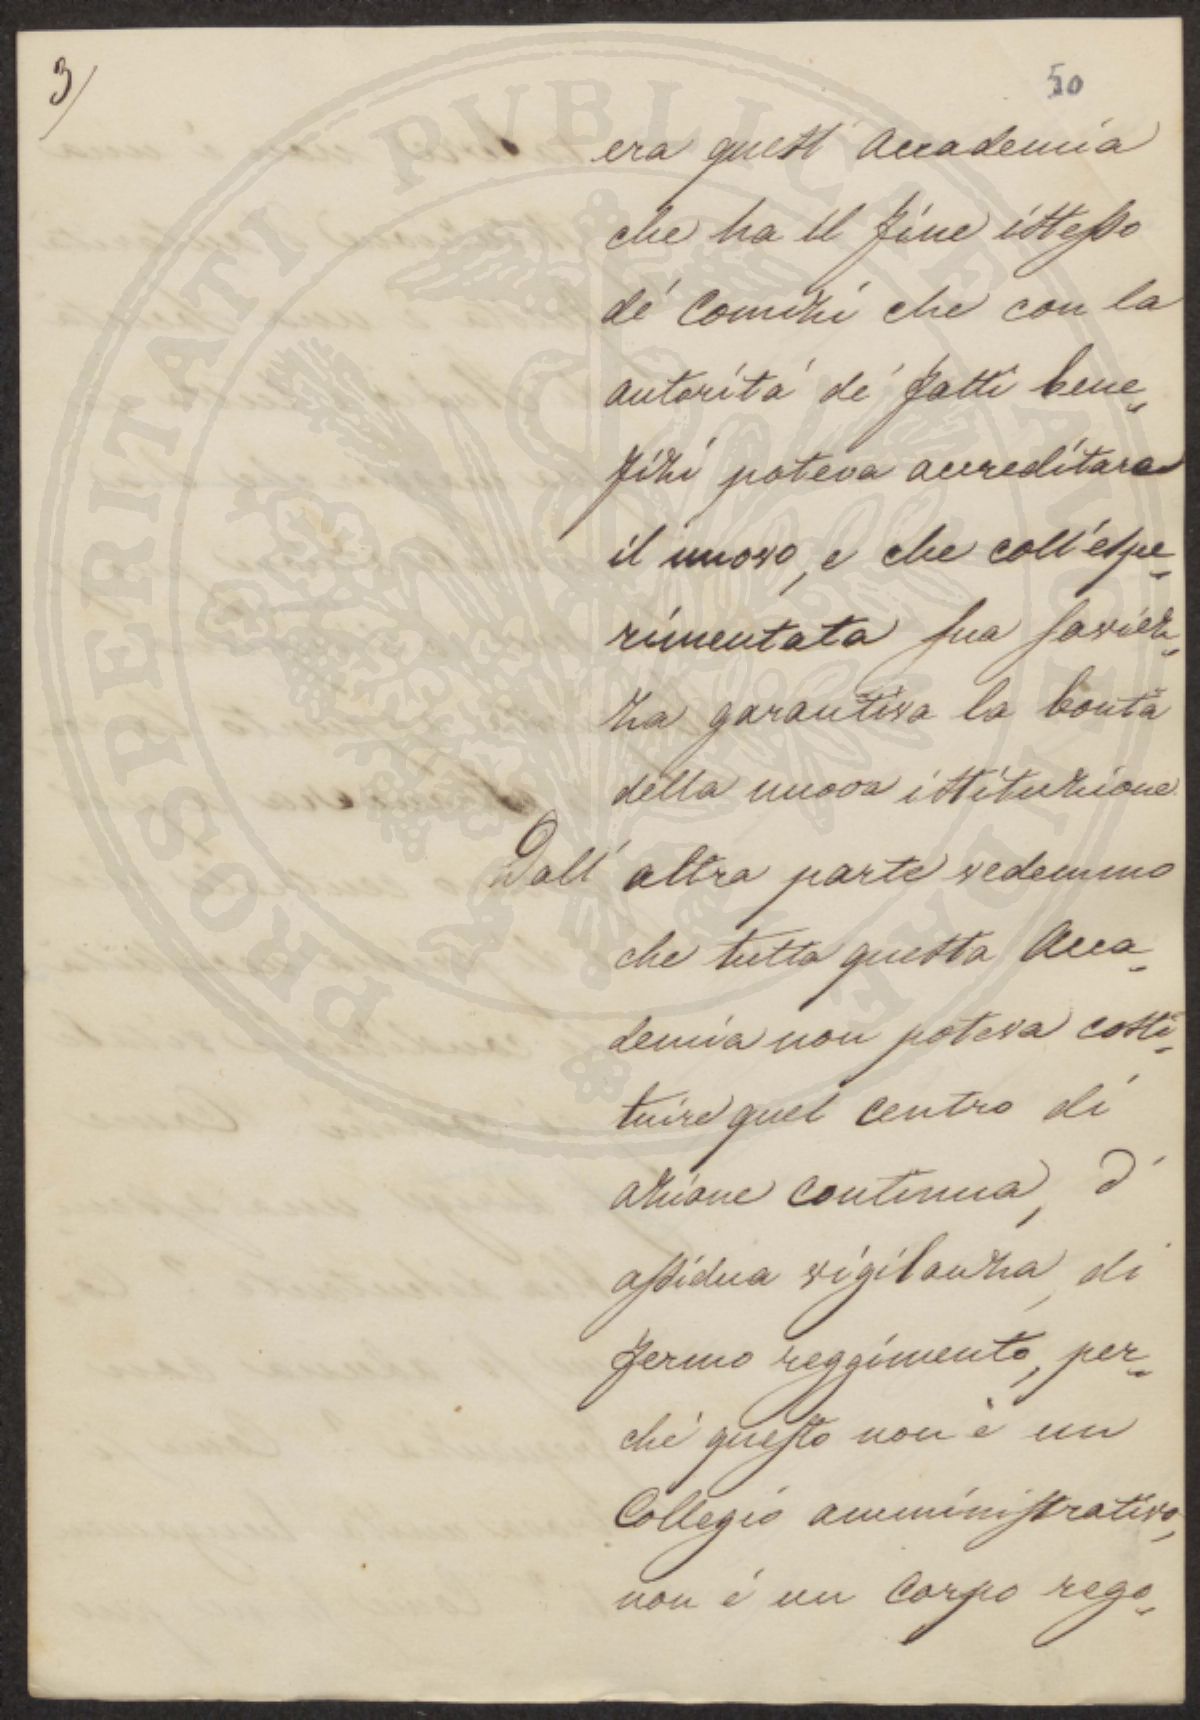 3/
50
era quest' Accademia
che ha il fine istesso
de' Comizi che con la
autoritá de' fatti bene-
fizi poteva accreditare
il nuovo, e che coll'espe-
rimentata sua saviez-
za garantiva la bontà
della nuova istituzione
Dall' altra parte vedemmo
che tutta questa Acca-
demia non poteva costi-
tuire quel centro di
azione continua, d'
assidua vigilanza, di
fermo reggimento, per-
ché questo non è un
Collegio amministrativo,
non é un Corpo rego-
PROSPERITATI PUBLICAE AUGENDAE